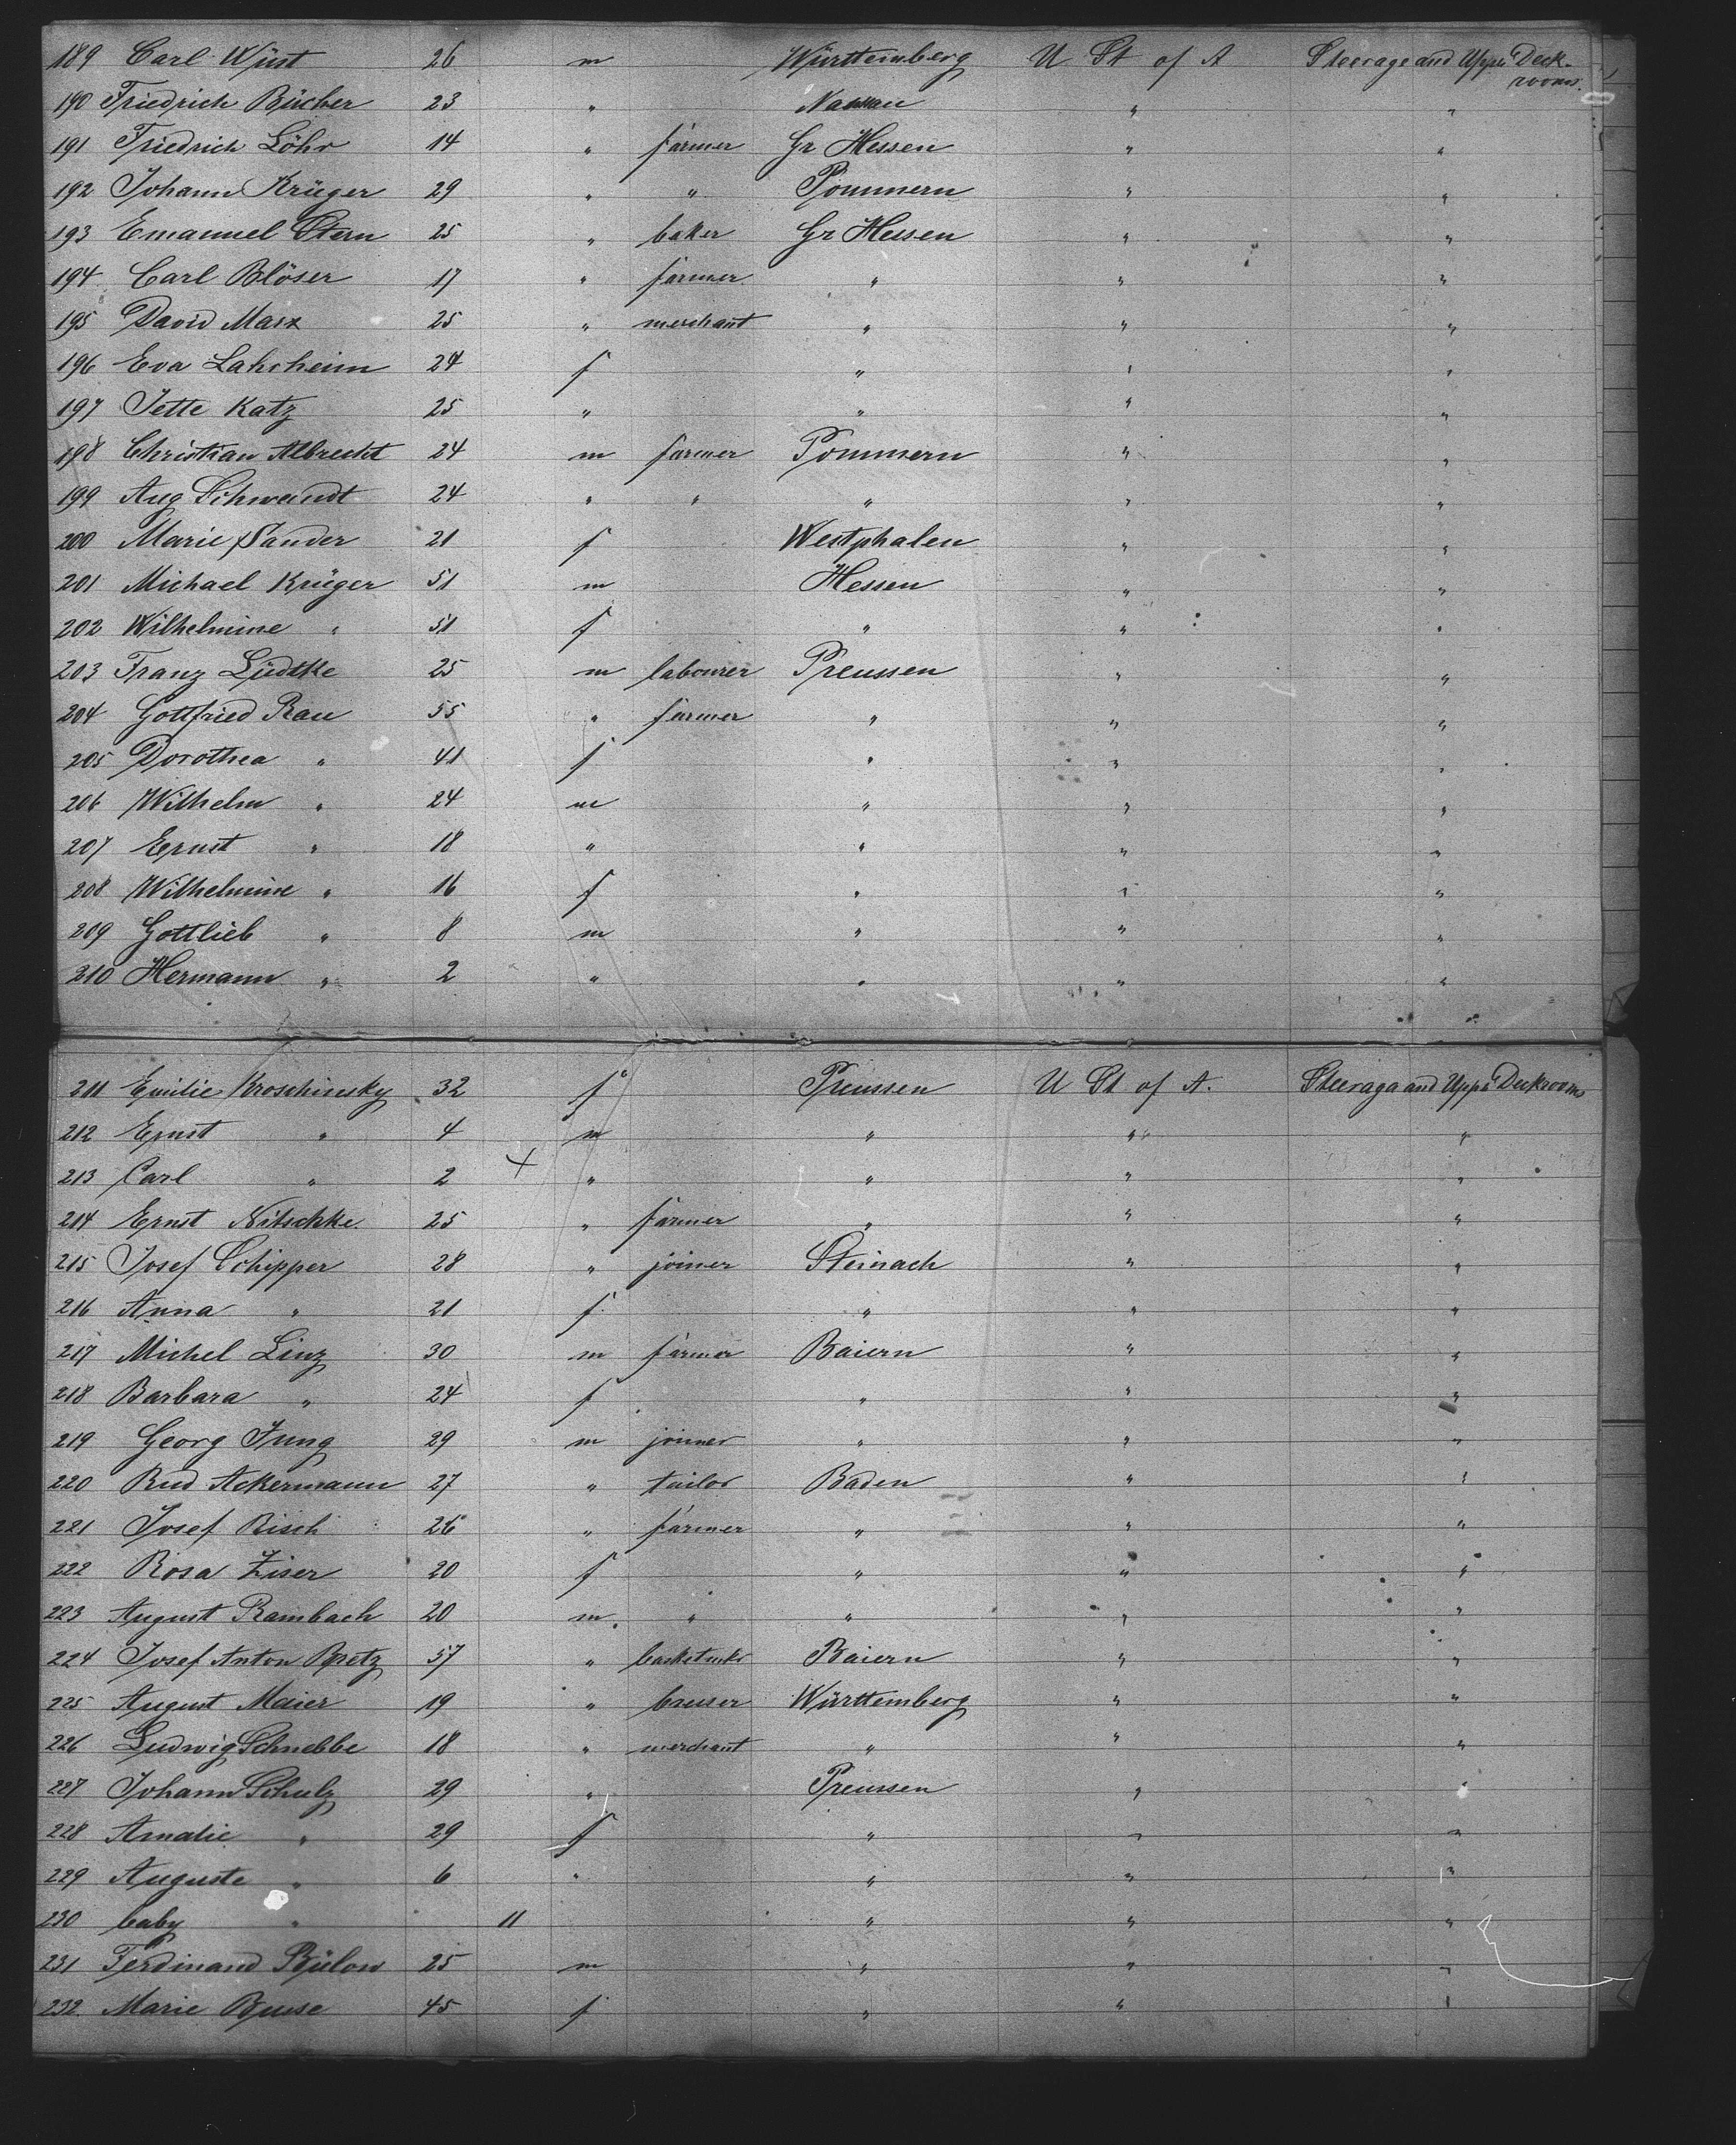 189 Carl Wüst 26 m Württemberg U St of A Steerage and Upp. Deck-
rooms.
190 Friedrich Bücher 23 " Nassau " "
191 Friedrich Löhr 14 " farmer Gr Hessen " "
192 Johann Krüger 29 " " Pommern " "
193 Emanuel Stern 25 " baker Gr Hessen " "
194 Carl Blöser 17 " farmer " " "
195 David Marx 25 " merchant " " "
196 Eva Lahrheim 24 f " " "
197 Jette Katz 25 " " " "
198 Christian Albrecht 24 m farmer Pommern " "
199 Aug Schwandt 24 " " " " "
200 Marie Sander 21 f Westphalen " "
201 Michael Krüger 51 m Hessen " "
202 Wilhelmine " 51 f " " "
203 Franz Lüdtke 25 m labourer Preussen " "
204 Gottfried Rau 55 " farmer " " "
205 Dorothea " 41 f " " "
206 Wilhelm " 24 m " " "
207 Ernst " 18 " " " "
208 Wilhelmine " 16 f " " "
209 Gottlieb " 8 m " " "
210 Hermann " 2 " " " "
211 Emilie Kroschinsky 32 f Preussen U St of A. Steerage and Upp. Deckrooms
212 Ernst " 4 m " " "
213 Carl " 2 + " " " "
214 Ernst Nitschke 25 " farmer " " "
215 Josef Schipper 28 " joiner Steinach " "
216 Anna " 21 f " " "
217 Michel Linz 30 m farmer Baiern " "
218 Barbara " 24 f " " "
219 Georg Jung 29 m joiner " " "
220 Rud Ackermann 27 " tailor Baden " "
221 Josef Risch 26 " farmer " " "
222 Rosa Ziser 20 f " " "
223 August Rambach 20 m " " " "
224 Josef Anton Bretz 57 " basketmkr Baiern " "
225 August Maier 19 " breuser Württemberg " "
226 Ludwig Schnebbe 18 " merchant " " "
227 Johann Schulz 29 " Preussen " "
228 Amalie " 29 f " " "
229 Auguste " 6 " " " "
230 baby " 11 " " "
231 Ferdinand Bülow 25 m " " "
232 Marie Buse 45 f " " "